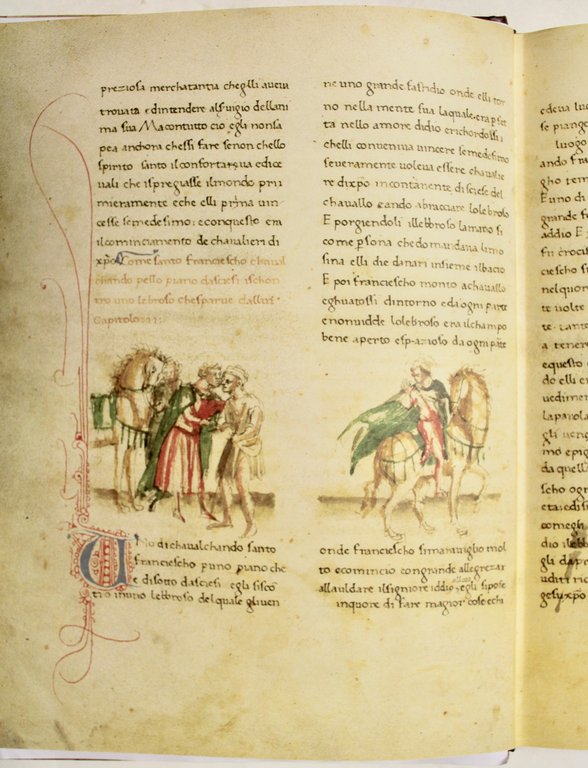 preziosa merchatantia chegli avevi
trovata & dintendere alservigio dellani
ma sua Ma contutto cio egli nonsa
pea anchora chessi fare senon chello
spirito santo il confortava edice
vali che ispregiasse ilmondo pri
mieramente eche elli prima vin
cesse semedesimo: econquesto era
il cominciamento de chavalieri di
xpo Come santo franciescho chaval
chando pello piano dasciesi ischon
tro uno lebroso chesparve dallui
Capitolo
Uno di chavalchando santo
franciescho p uno piano che
e disotto dasciesi egli sisco
tro inuno lebbroso del quale gliven
ne uno grande fastidio onde elli tor
no nella mente sua laquale era p fet
ta nello amore didio erichordossi
chelli conveniva vincere semedesimo
severamente voleva essere chavalie
re dixpo incontanente disciese del
chavallo eando abbracciare lo lebroso
E porgiendoli illebbroso lamano si
come p sona che domandava limo
sina elli die danari insieme ilbacio
E poi franciescho monto achavallo
eghuatossi dintorno eda ogni parte
enonvidde lo lebroso era ilchampo
bene aperto espazioso da ogni parte
onde franciescho si maraviglio mol
to ecomincio con grande allegreza
allauldare ilsigniore iddio egli sipose
inquore di fare magior cose echi
edeva luo
se piange
luogo
ando fra
gho tem
E uno di
grande f
addio E p
fu crocif
ciescho si
nelquor
te volte
te. tant
a tenere
equesto
do elli er
vedimen
la parola
gli
mo epig
da quell
scho ogn
eta: edisi
come gh
dio ilebb
gli dar
uditi ric
gesuxpo